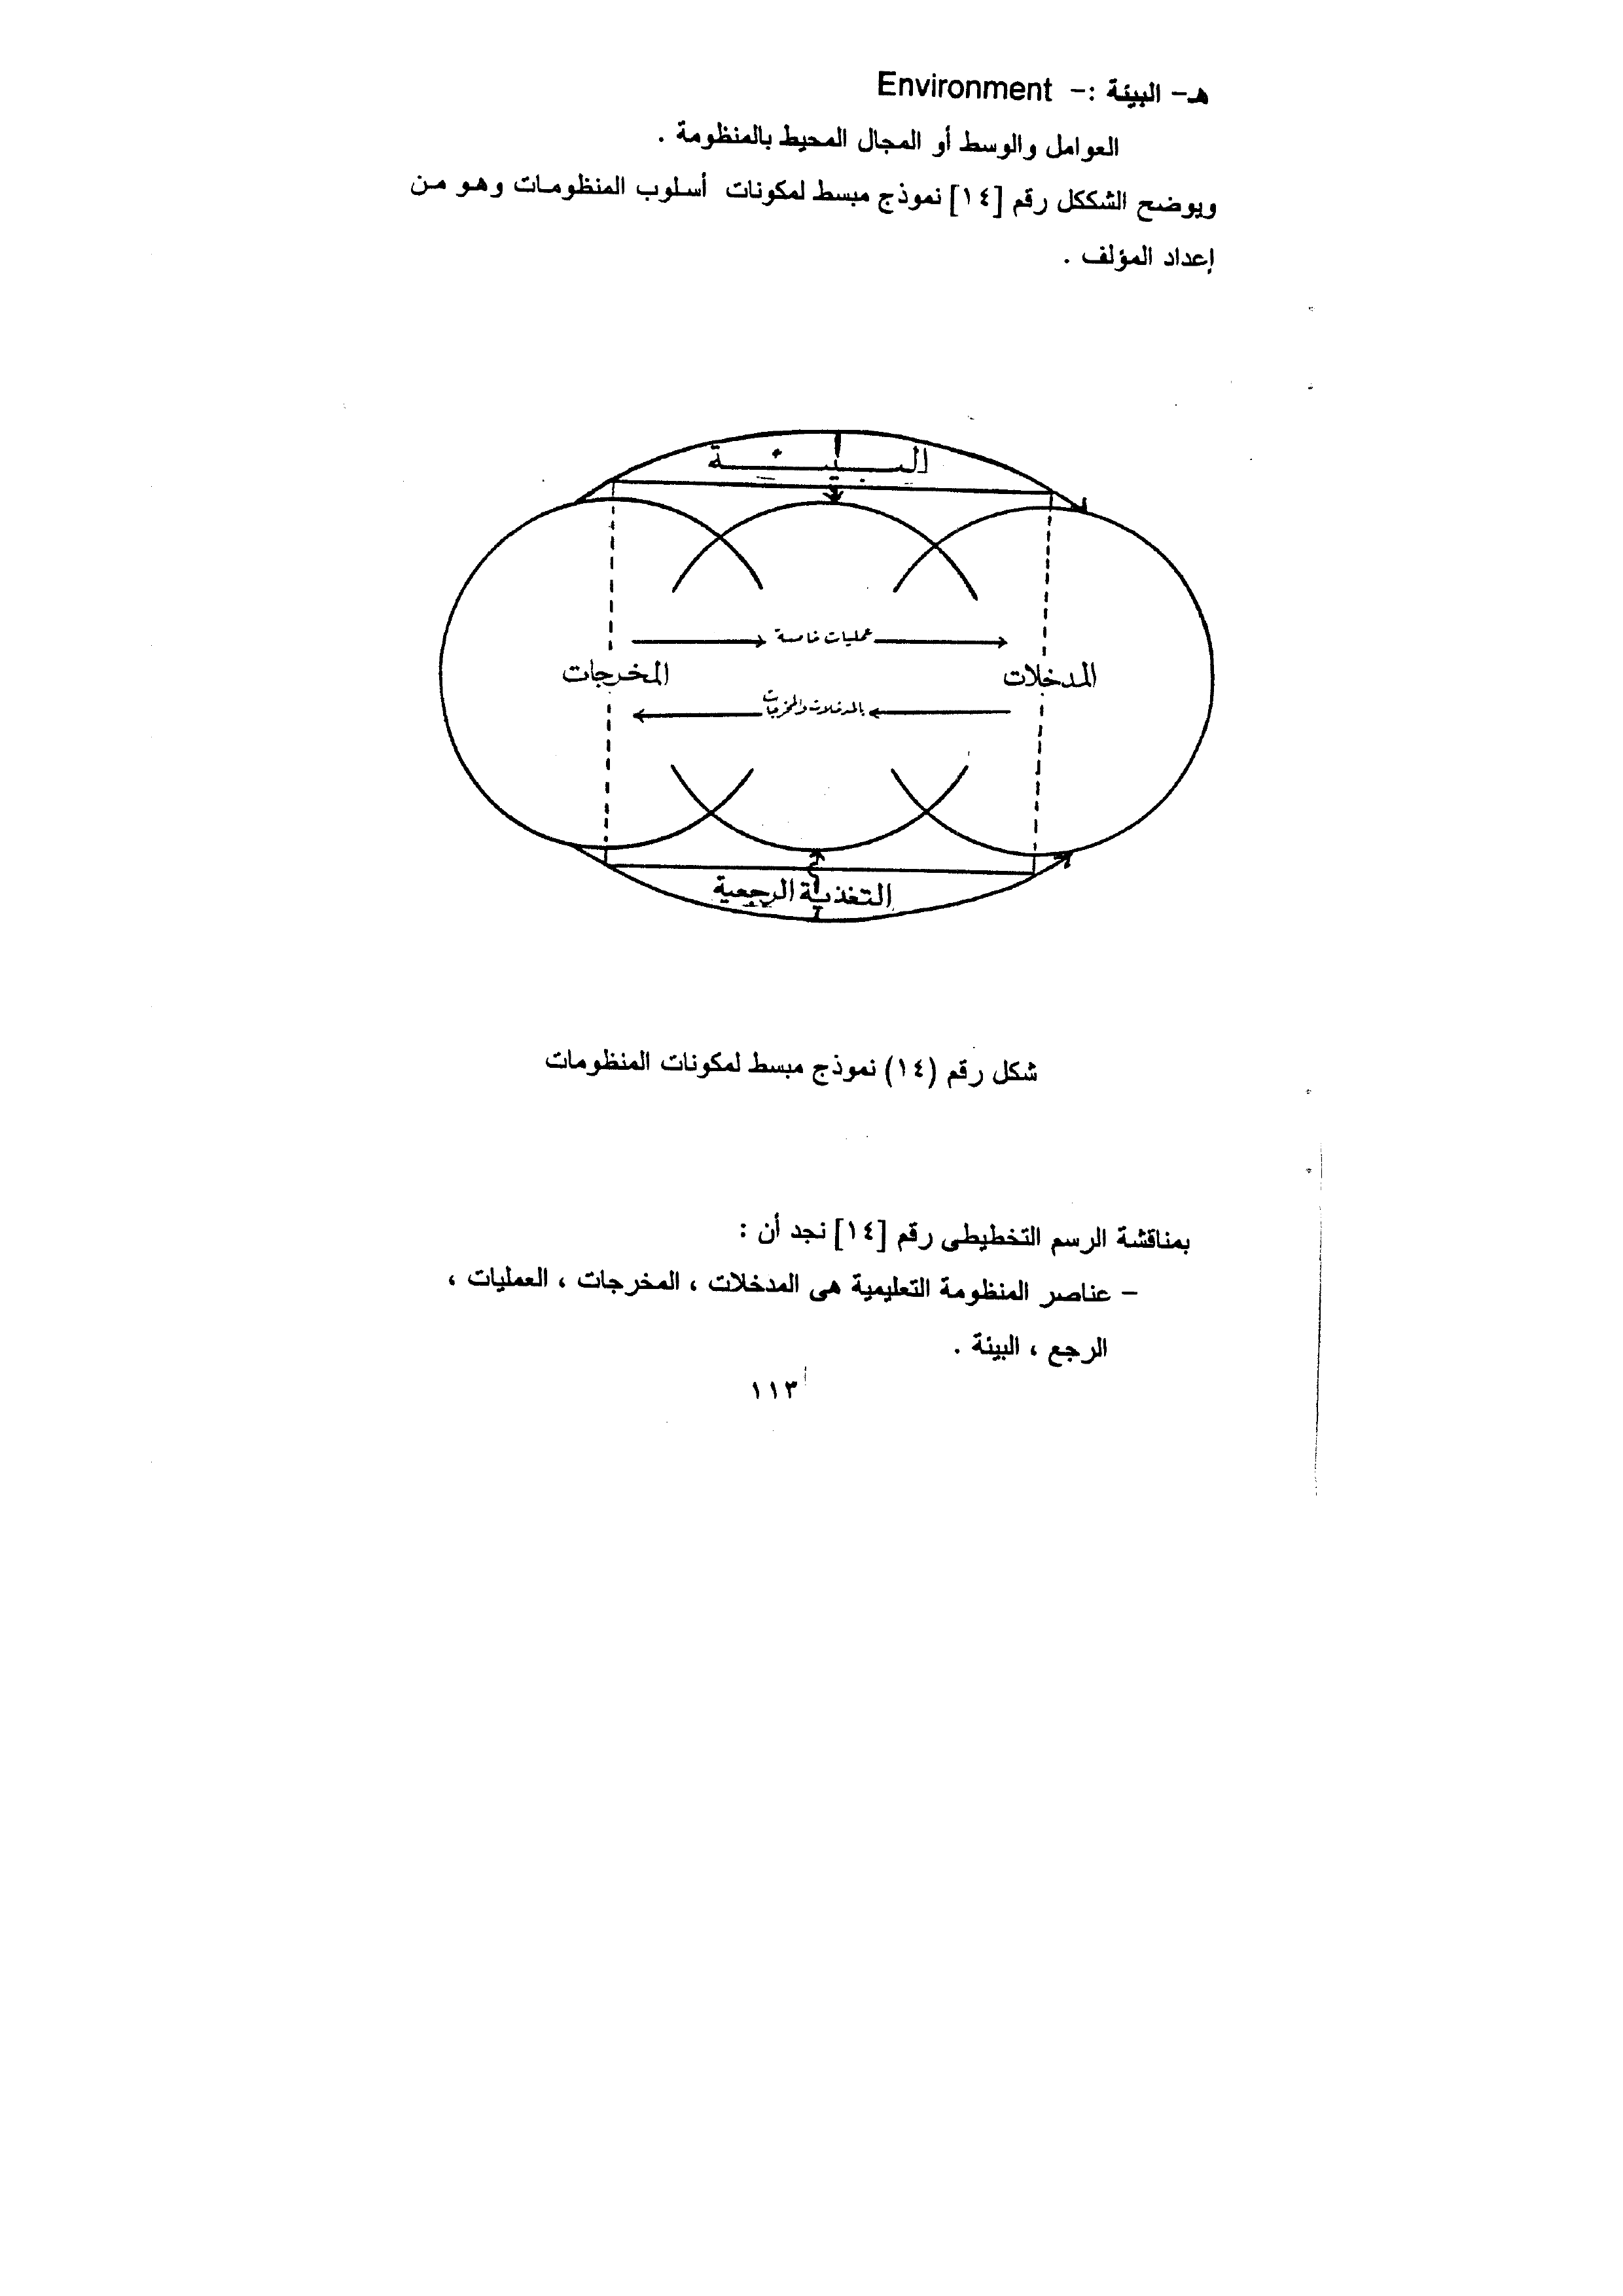 هـ- البيئة :- Environment
العوامل والوسط أو المجال المحيط بالمنظومة .
ويوضح الشككل رقم [١٤] نموذج مبسط لمكونات أسلوب المنظومات وهو من
إعداد المؤلف .
البيئة
عمليات خاصة
المدخلات
المخرجات
بالمدخلات والمخرجات
التغذية الرجعية
شكل رقم (١٤) نموذج مبسط لمكونات المنظومات
بمناقشة الرسم التخطيطى رقم [١٤] نجد أن :
- عناصر المنظومة التعليمية هى المدخلات ، المخرجات ، العمليات ،
الرجع ، البيئة .
١١٣